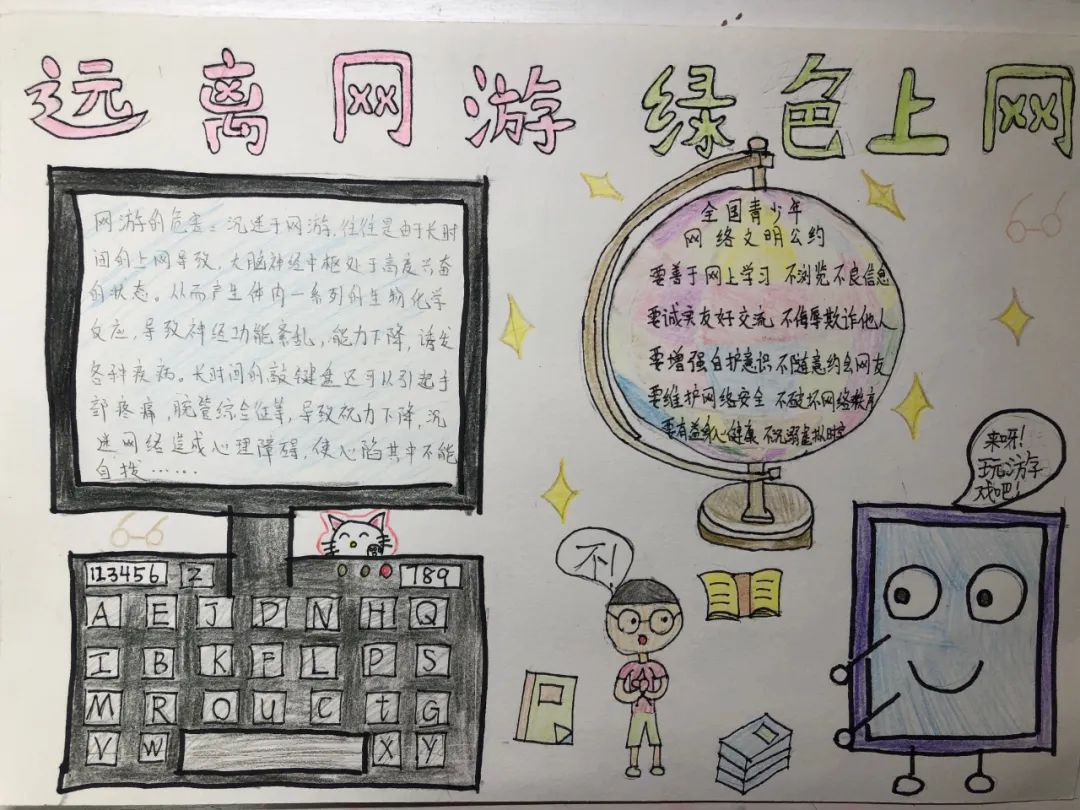 远离网游 绿色上网
网游的危害：沉迷于网游，往往是由于长时
间的上网导致，大脑神经中枢处于高度兴奋
的状态。从而产生体内一系列的生物化学
反应，导致神经功能紊乱，能力下降，诱发
各种疾病。长时间的敲键盘还可以引起手
部疼痛，腕管综合征等，导致视力下降，沉
迷网络造成心理障碍，使心陷其中不能
自拨……
全国青少年
网络文明公约
要善于网上学习 不浏览不良信息
要诚实友好交流 不侮辱欺诈他人
要增强自护意识 不随意约会网友
要维护网络安全 不破坏网络秩序
要有益身心健康 不沉溺虚拟时空
来呀！
玩游
戏吧！
不！
123456 Z 789
A E J D N H Q
I B K F L P S
M R O U C t G
V W X Y